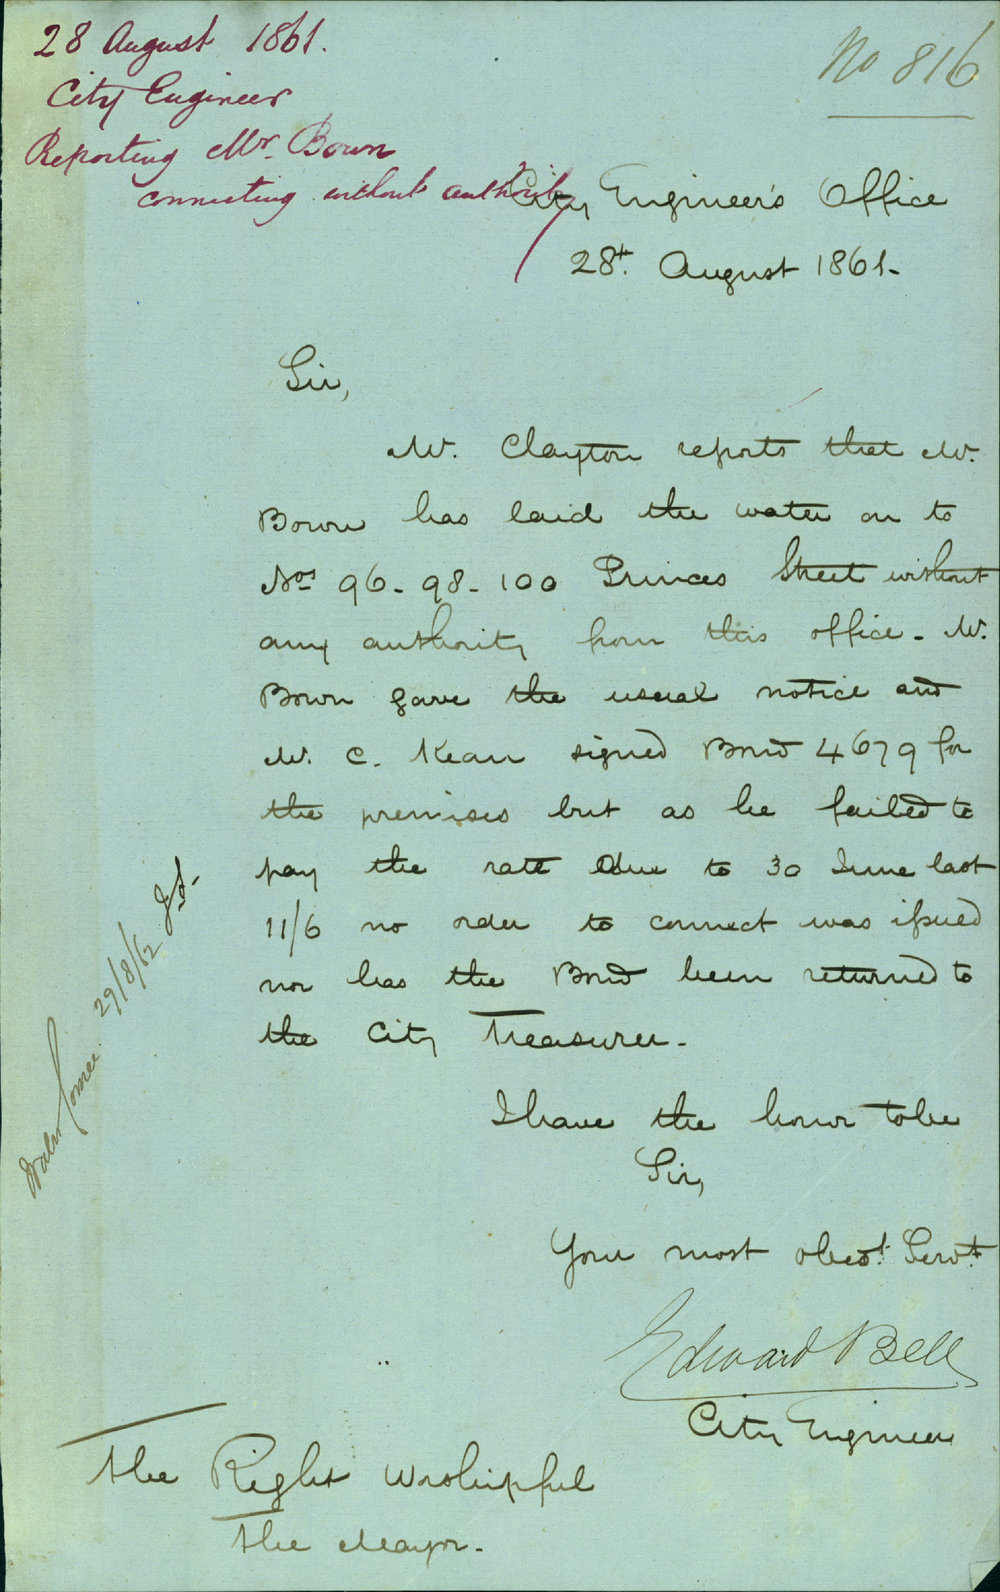 28 August 1861.
City Engineer
Reporting Mr. Bown
connecting without authority
No 816
City Engineer's Office
28th. August 1861.
Sir,
Mr. Clayton reports that Mr.
Bown has laid the water on to
Nos 96 - 98 - 100 Princes Street without
any authority from this office - Mr.
Bown gave the usual notice and
Mr. C. Kean signed Bond 4679 for
the premises but as he failed to
pay the rate due to 30 June last
11/6 no order to connect was issued
nor has the Bond been returned to
the City Treasurer -
I have the honor to be
Sir,
Your most obedt. Servt.
Edward Bell
City Engineer
The Right Worshipful
The Mayor -
Water Comee. 29/8/62